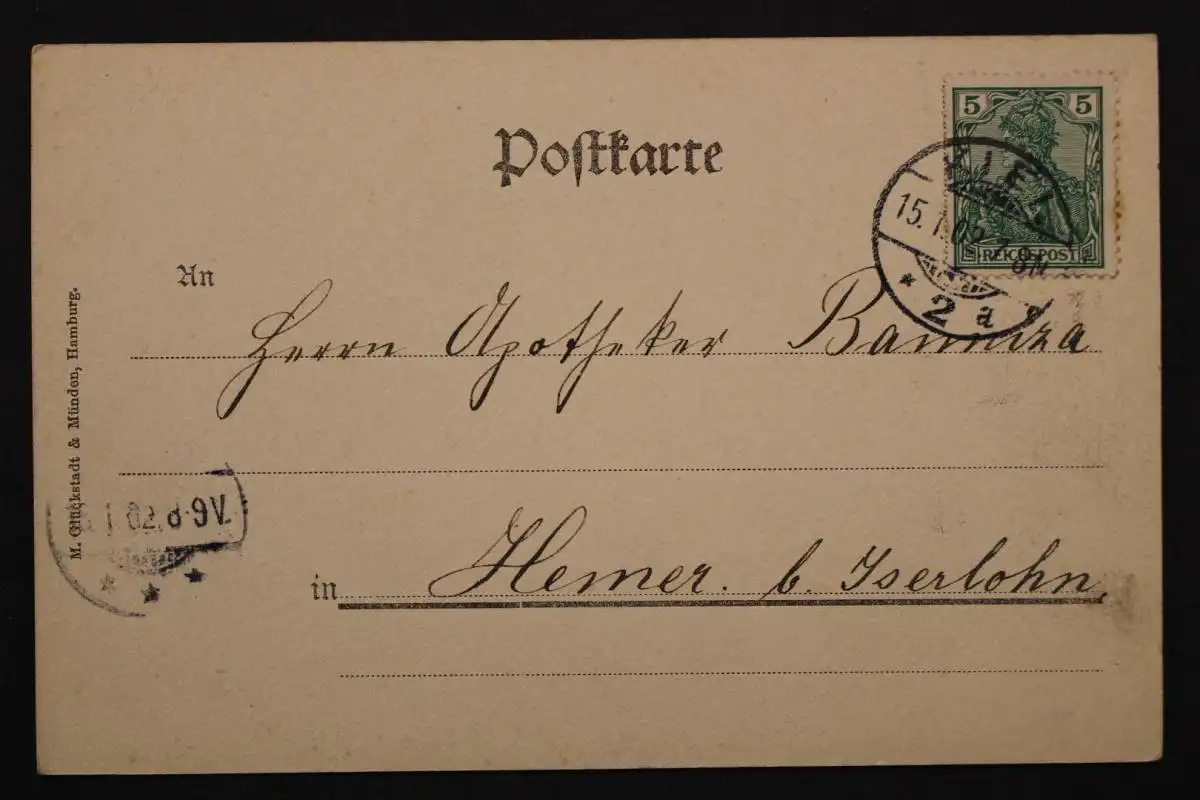 Postkarte
5 5
REICHSPOST
KIEL
15.1.02. 7-8N
* 2 a *
An
Herrn Apotheker Banniza
in Hemer. b. Iserlohn,
M. Glückstadt & Münden, Hamburg.
1.02. 8-9V.
* * *